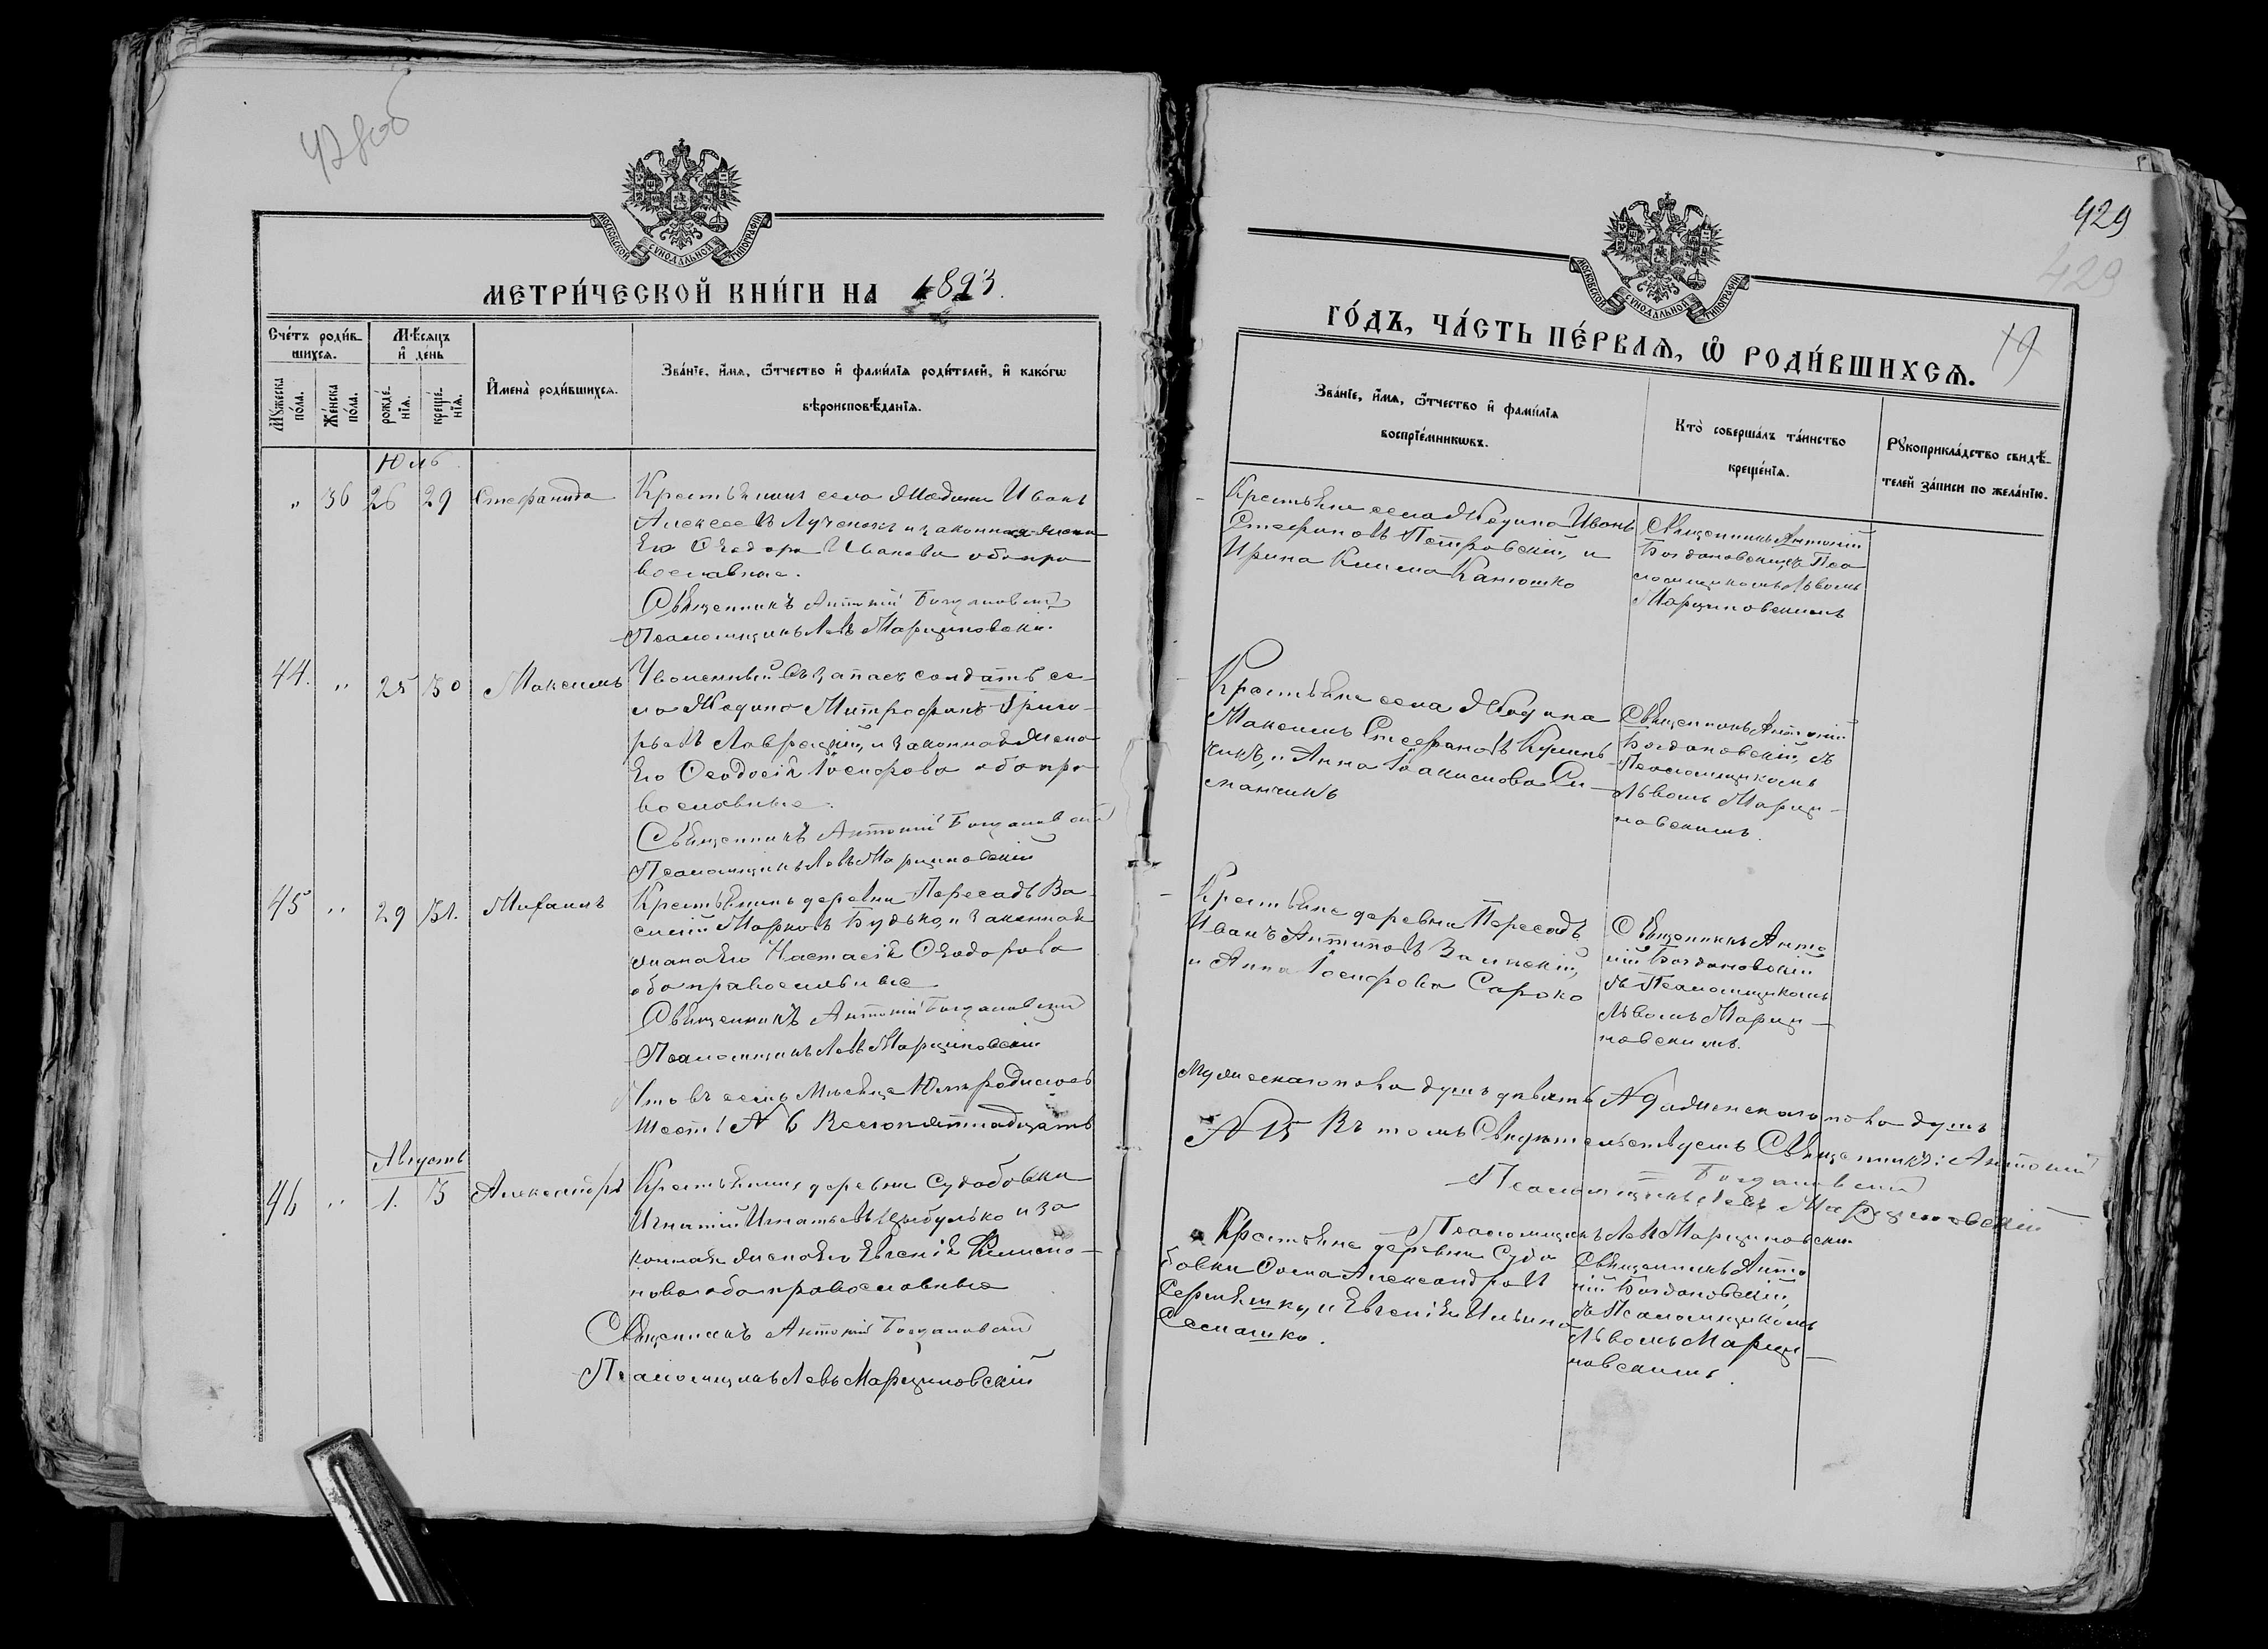 428об
МОСКОВСКОЙ СѴНОДАЛЬНОЙ ТИПОГРАФІИ
МЕТРИ́ЧЕСКОЙ КНИ́ГИ НА 1893.
Сче́тъ роди́в-
шихсѧ.
Мѣ́сѧцъ
и҆ де́нь
Мꙋ́жеска
по́ла.
Же́нска
по́ла.
рожде́-
нїѧ.
креще́-
нїѧ.
И҆мена̀ роди́вшихсѧ.
Зва́нїе, и҆́мѧ, ѻ҆́тчество и҆ фами́лїѧ роди́телей, и҆ како́гѡ
вѣроисповѣ́данїѧ.
Юль
„ 36 26 29 Стефанида
Крестьянинъ села Жодина Иванъ
Алексеевъ Лученокъ и законная жена
его Ѳеодора Иванова оба пра
вославные.
Священникъ Антоній Богдановскій
Псаломщикъ Левъ Марциновскій
44. „ 25 30 Максимъ
Уволенный въ запасъ солдатъ се-
ла Жодина Митрофанъ Григо-
рьевъ Лаврецкій, и законная жена
его Ѳеодосія Іосифова оба пра-
вославные.
Священникъ Антоній Богдановскій
Псаломщикъ Левъ Марциновскій
45 „ 29 31. Михаилъ
Крестьянинъ деревни Пересадъ Ва-
силій Марковъ Будько, и законная
жена его Настасія Ѳеодорова
оба православные
Священникъ Антоній Богдановскій
Псаломщикъ Левъ Марциновскій
Что въ семъ мѣсяце Юлѣ родилось
шесть № 6 Всего пятнадцать
Августъ
46 „ 1. 3 Александръ
Крестьянинъ деревни Судобовки
Игнатій Игнатьевъ Цыбулько и за
конная жена его Евгенія Филимо-
нова оба православные
Священникъ Антоній Богдановскій
Псаломщикъ Левъ Марциновскій
429
429
19
МОСКОВСКОЙ СѴНОДАЛЬНОЙ ТИПОГРАФІИ
ГО́ДЪ, ЧА́СТЬ ПЕ́РВАѦ, Ѽ РОДИ́ВШИХСѦ.
Зва́нїе, и҆́мѧ, ѻ҆́тчество и҆ фами́лїѧ
воспрїе́мникѡвъ.
Кто̀ соверша́лъ та́инство
креще́нїѧ.
Рꙋкоприкла́дство свидѣ́-
телей за́писи по жела́нїю.
Крестьяне села Жодина Иванъ
Стефановъ Петровскій, и
Ирина Климова Канюшко
Священникъ Антоній
Богдановскій, съ Пса
ломщикомъ Львомъ
Марциновскимъ
Крестьяне села Жодина
Максимъ Стефановъ
и Анна Іоакимова Си-
манчикъ
Священникъ Антоній
Богдановскій, съ
Псаломщикомъ
Львомъ Марци-
новскимъ.
Крестьяне деревни Пересадъ
Иванъ Антиповъ Залескій,
и Анна Іосифова Сароко
Священникъ Анто
ній Богдановскій
съ Псаломщикомъ
Львомъ Марци-
новскимъ.
Мужескаго пола душъ девять № 9 а женскаго пола душъ
№ 15 Въ томъ свидѣтельствуемъ Священникъ: Антоній
Богдановскій
Псаломщикъ Левъ Марциновскій
Псаломщикъ Левъ Марциновскій
Крестьяне деревни Судо
бовки Ѳома Александровъ
и Евгенія Ильина
Семашко.
Священникъ Анто
ній Богдановскій,
съ Псаломщикомъ
Львомъ Марци-
новскимъ.